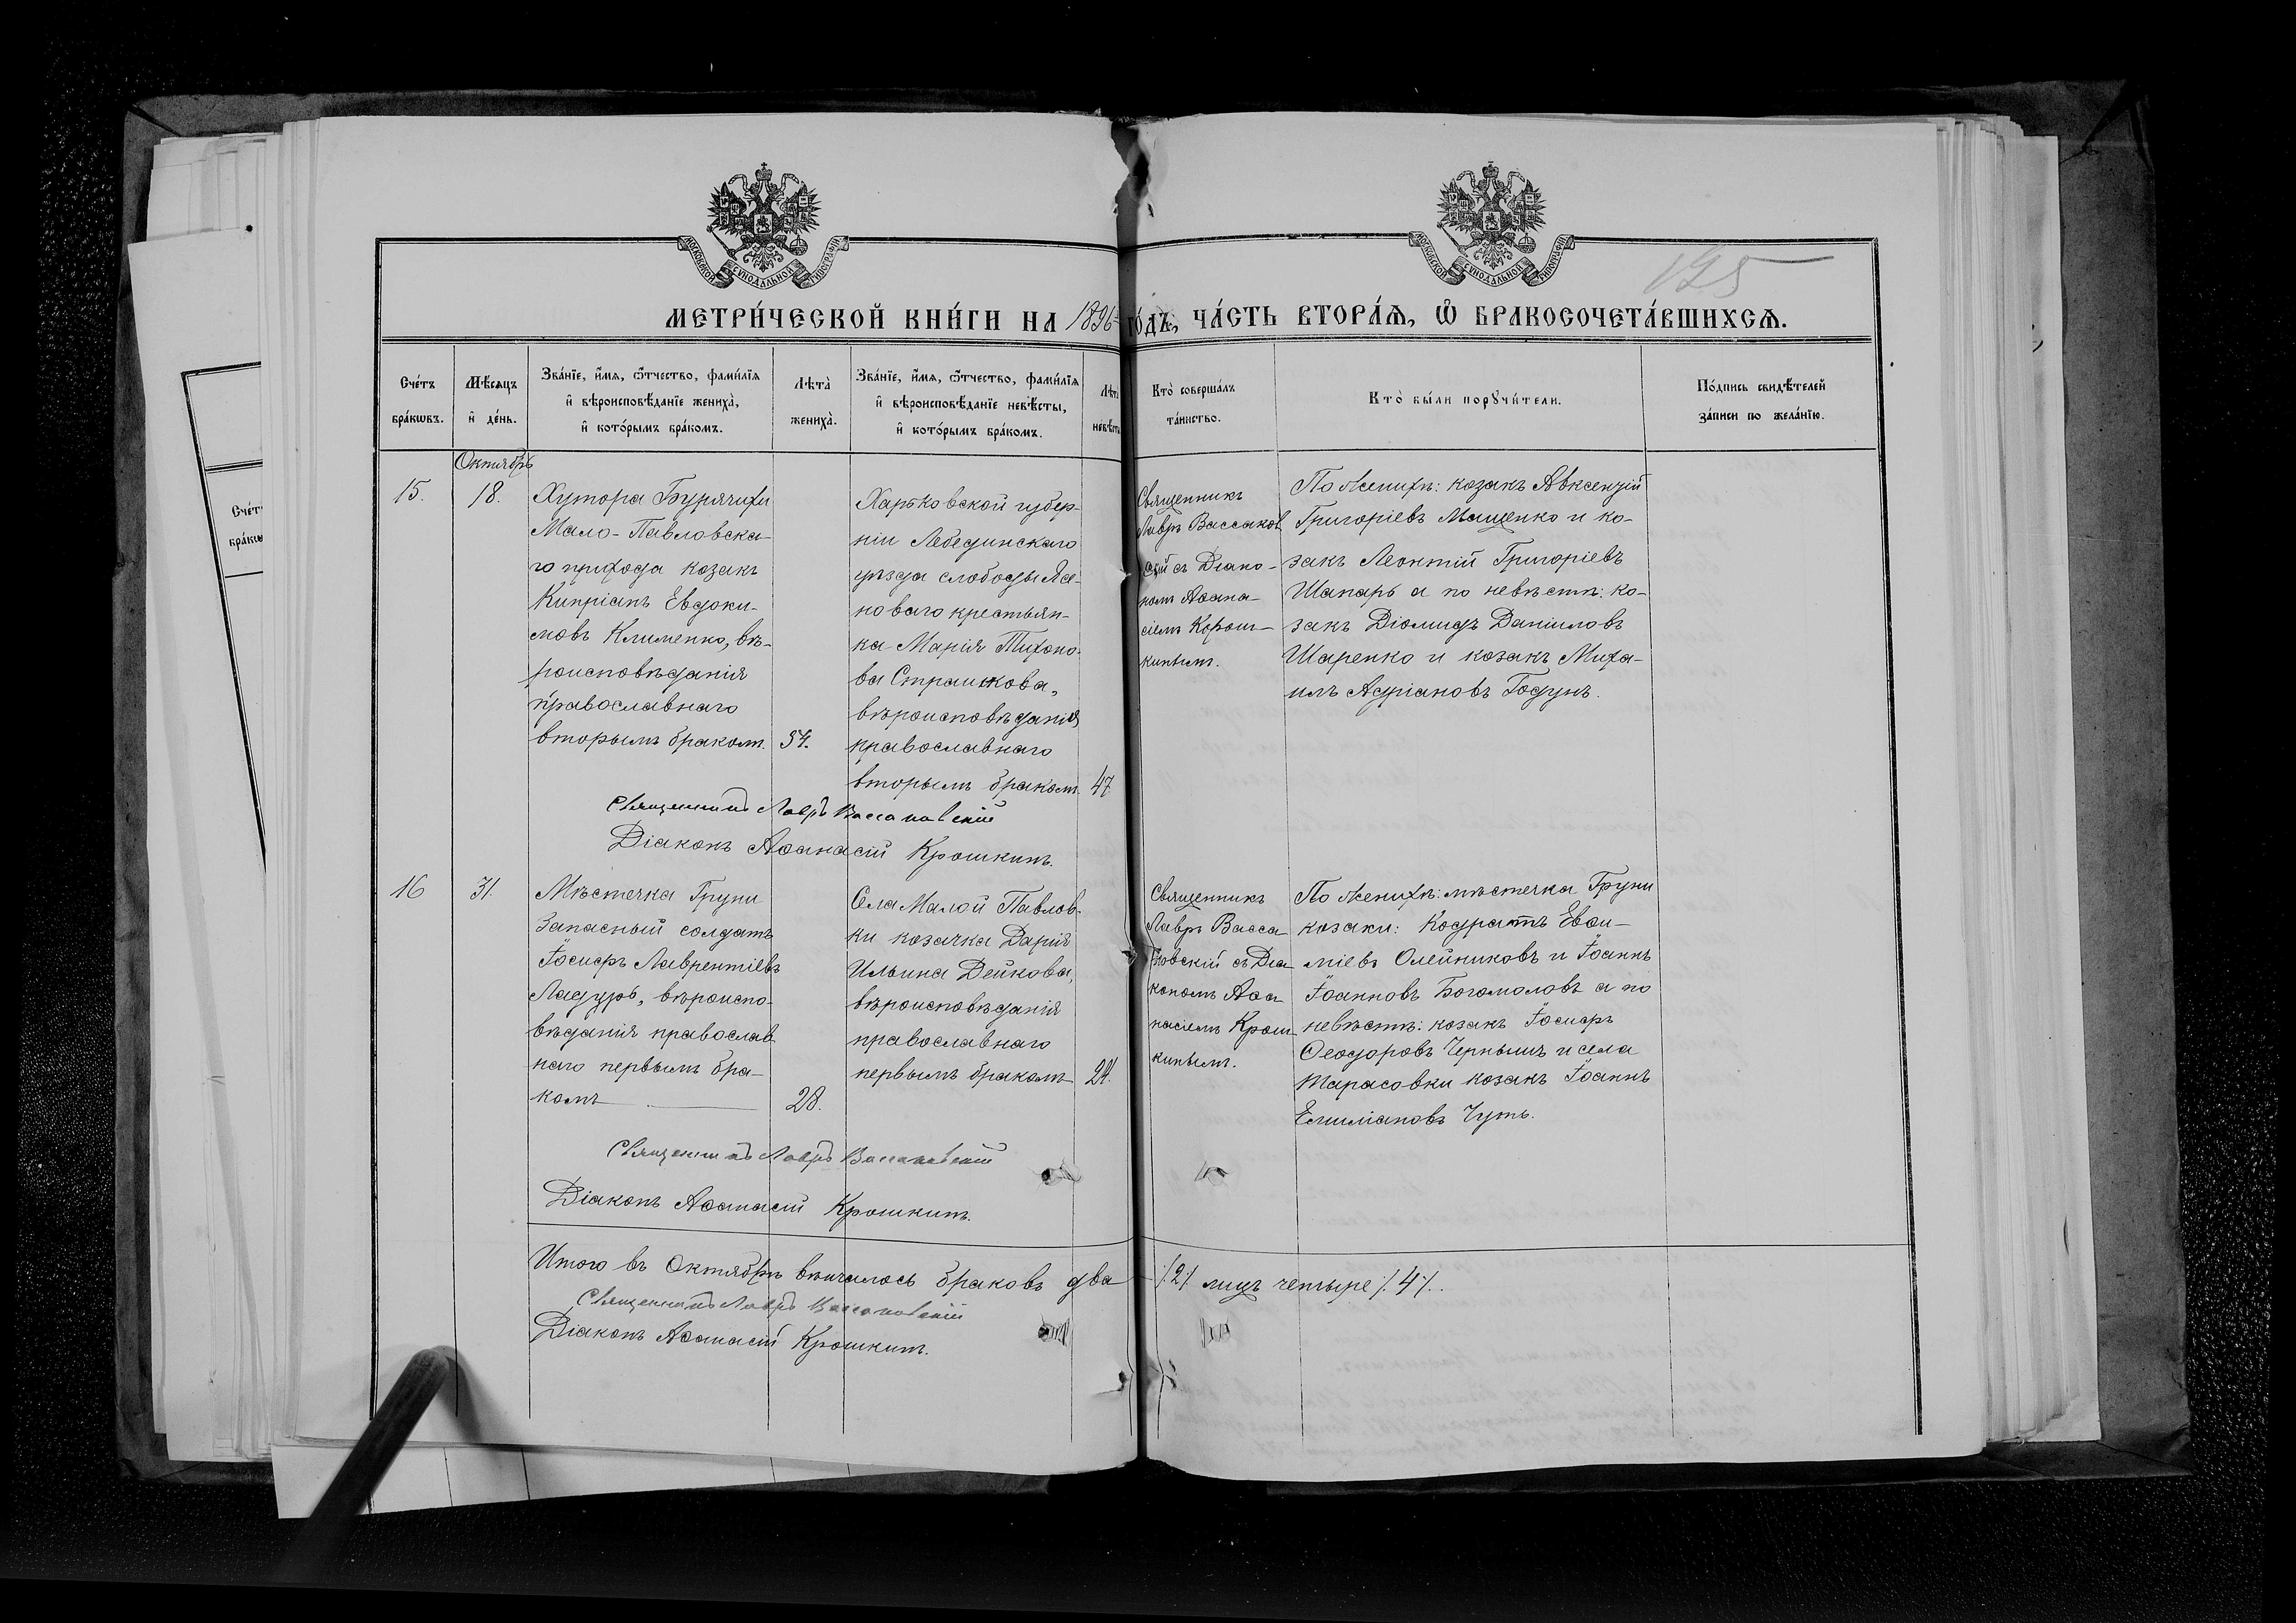 МОСКОВСКОЙ СѴНОДАЛЬНОЙ ТИПОГРАФІИ
МОСКОВСКОЙ СѴНОДАЛЬНОЙ ТИПОГРАФІИ
125
МЕТРИ́ЧЕСКОЙ КНИ́ГИ НА 1896 ГО́ДЪ, ЧА́СТЬ ВТОРА́Ѧ, Ѡ҆ БРАКОСОЧЕТА́ВШИХСѦ.
Сче́тъ
бра́кѡвъ.
Мѣ́сѧцъ
и҆ де́нь.
Зва́нїе, и҆́мѧ, ѻ҆́тчество, фамѝлїѧ
и҆ вѣроисповѣ́данїе жениха̀,
и҆ кото́рымъ бра́комъ.
Лѣта̀
жениха̀.
Зва́нїе, и҆́мѧ, ѻ҆́тчество, фамѝлїѧ
и҆ вѣроисповѣ́данїе невѣ́сты,
и҆ кото́рымъ бра́комъ.
Лѣта̀
невѣ́сты
Кто̀ соверша́лъ
та́инство.
Кто̀ бы́ли порꙋчи́тели.
По́дпись свидѣ́телей
за́писи по жела́нїю.
Октябрь
15.
18.
Хутора Бурячихи
Мало-Павловска-
го прихода козакъ
Кипріанъ Евдоки-
мовъ Клименко, вѣ-
роисповѣданія
православнаго
вторымъ бракомъ.
34.
Харьковской губер-
ніи Лебединскаго
уѣзда слободы Ясе-
новаго крестьян-
ка Марія Тихоно-
ва Страшкова,
вѣроисповѣданія
православнаго
вторымъ бракомъ.
47
Священникъ
Лавръ Вассанов
скій съ Діако-
номъ Аѳана-
сіемъ Крош-
кинымъ.
По женихѣ: козакъ Авксентій
Григоріевъ Мащенко и ко-
закъ Леонтій Григоріевъ
Шапарь а по невѣстѣ: ко-
закъ Діомидъ Даніиловъ
Шаренко и козакъ Миха-
илъ Адріановъ Годунъ.
Священникъ Лавръ Вассановскій
Діаконъ Аѳанасій Крошкинъ.
16
31.
Мѣстечка Груни
Запасный солдатъ
Іосифъ Лаврентіевъ
Ладуръ, вѣроиспо-
вѣданія православ
наго первымъ бра-
комъ
28.
Села Малой Павлов-
ки козачка Дарія
Ильина Дейкова,
вѣроисповѣданія
православнаго
первымъ бракомъ
24.
Священникъ
Лавръ Васса
новскій съ Діа
кономъ Аѳа
насіемъ Крош
кинымъ.
По женихѣ: мѣстечка Груни
козаки: Кодратъ Евѳи-
міевъ Олейниковъ и Іоаннъ
Іоанновъ Богомоловъ а по
невѣстѣ: козакъ Іосифъ
Ѳеодоровъ Чернышъ и села
Тарасовки козакъ Іоаннъ
Емиліановъ Чуть.
Священникъ Лавръ Вассановскій
Діаконъ Аѳанасій Крошкинъ.
Итого въ Октябрѣ вѣнчалось браковъ два /.2./ лицъ четыре /.4./.
Священникъ Лавръ Вассановскій
Діаконъ Аѳанасій Крошкинъ.
Счет
бра́кѡ